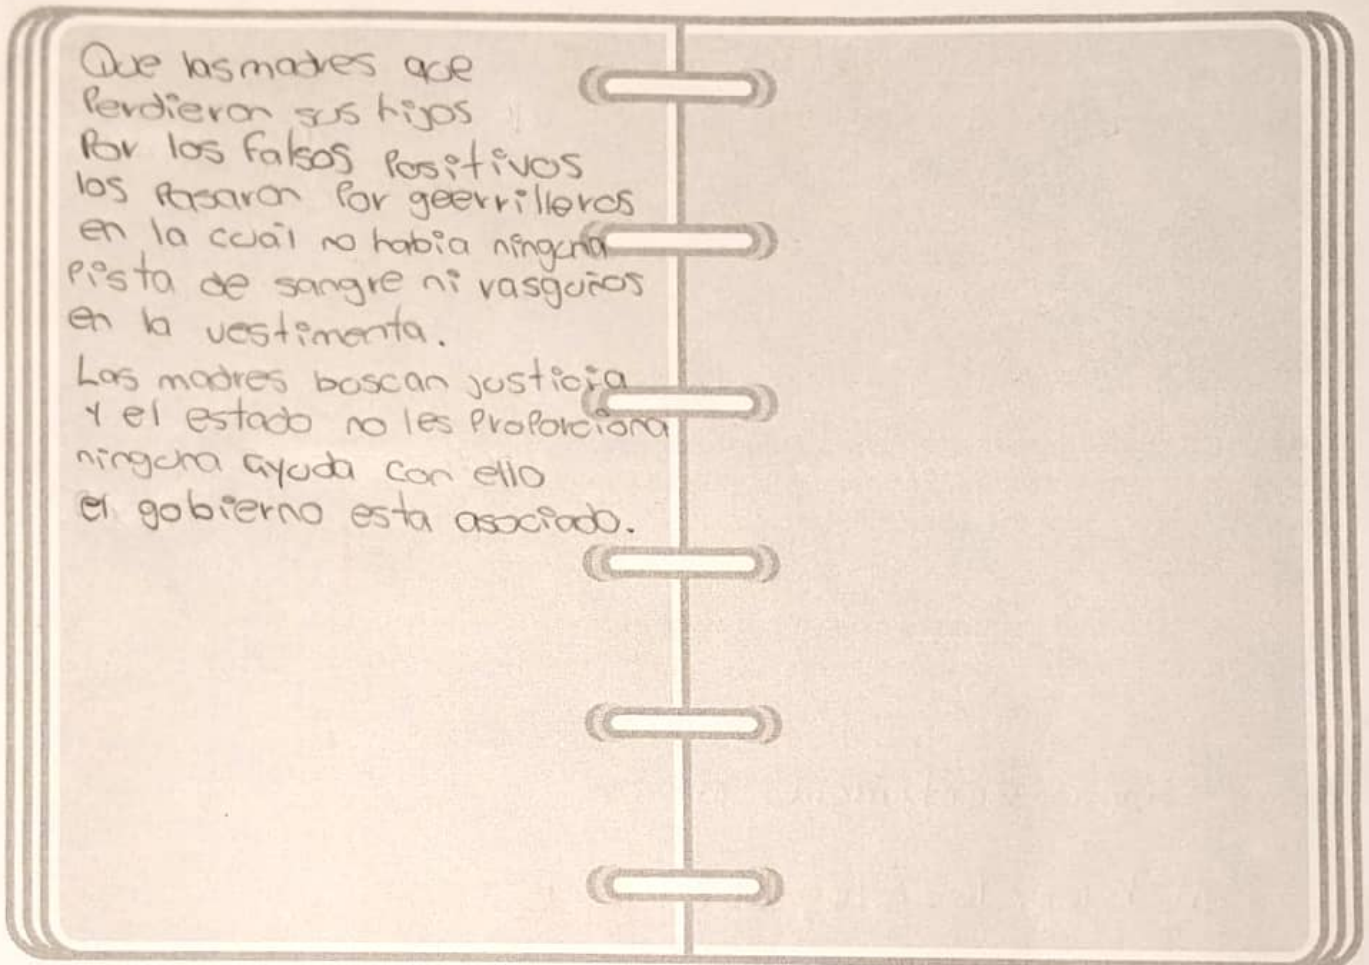 Que las madres que
Perdieron sus hijos
Por los falsos Positivos
los Pasaron Por geerrilleros
en la cuál no había ninguna
Pista de sangre ni rasguños
en la vestimenta.
Las madres buscan justicia
Y el estado no les ProPorciona
ninguna ayuda con ello
el gobierno esta asociado.